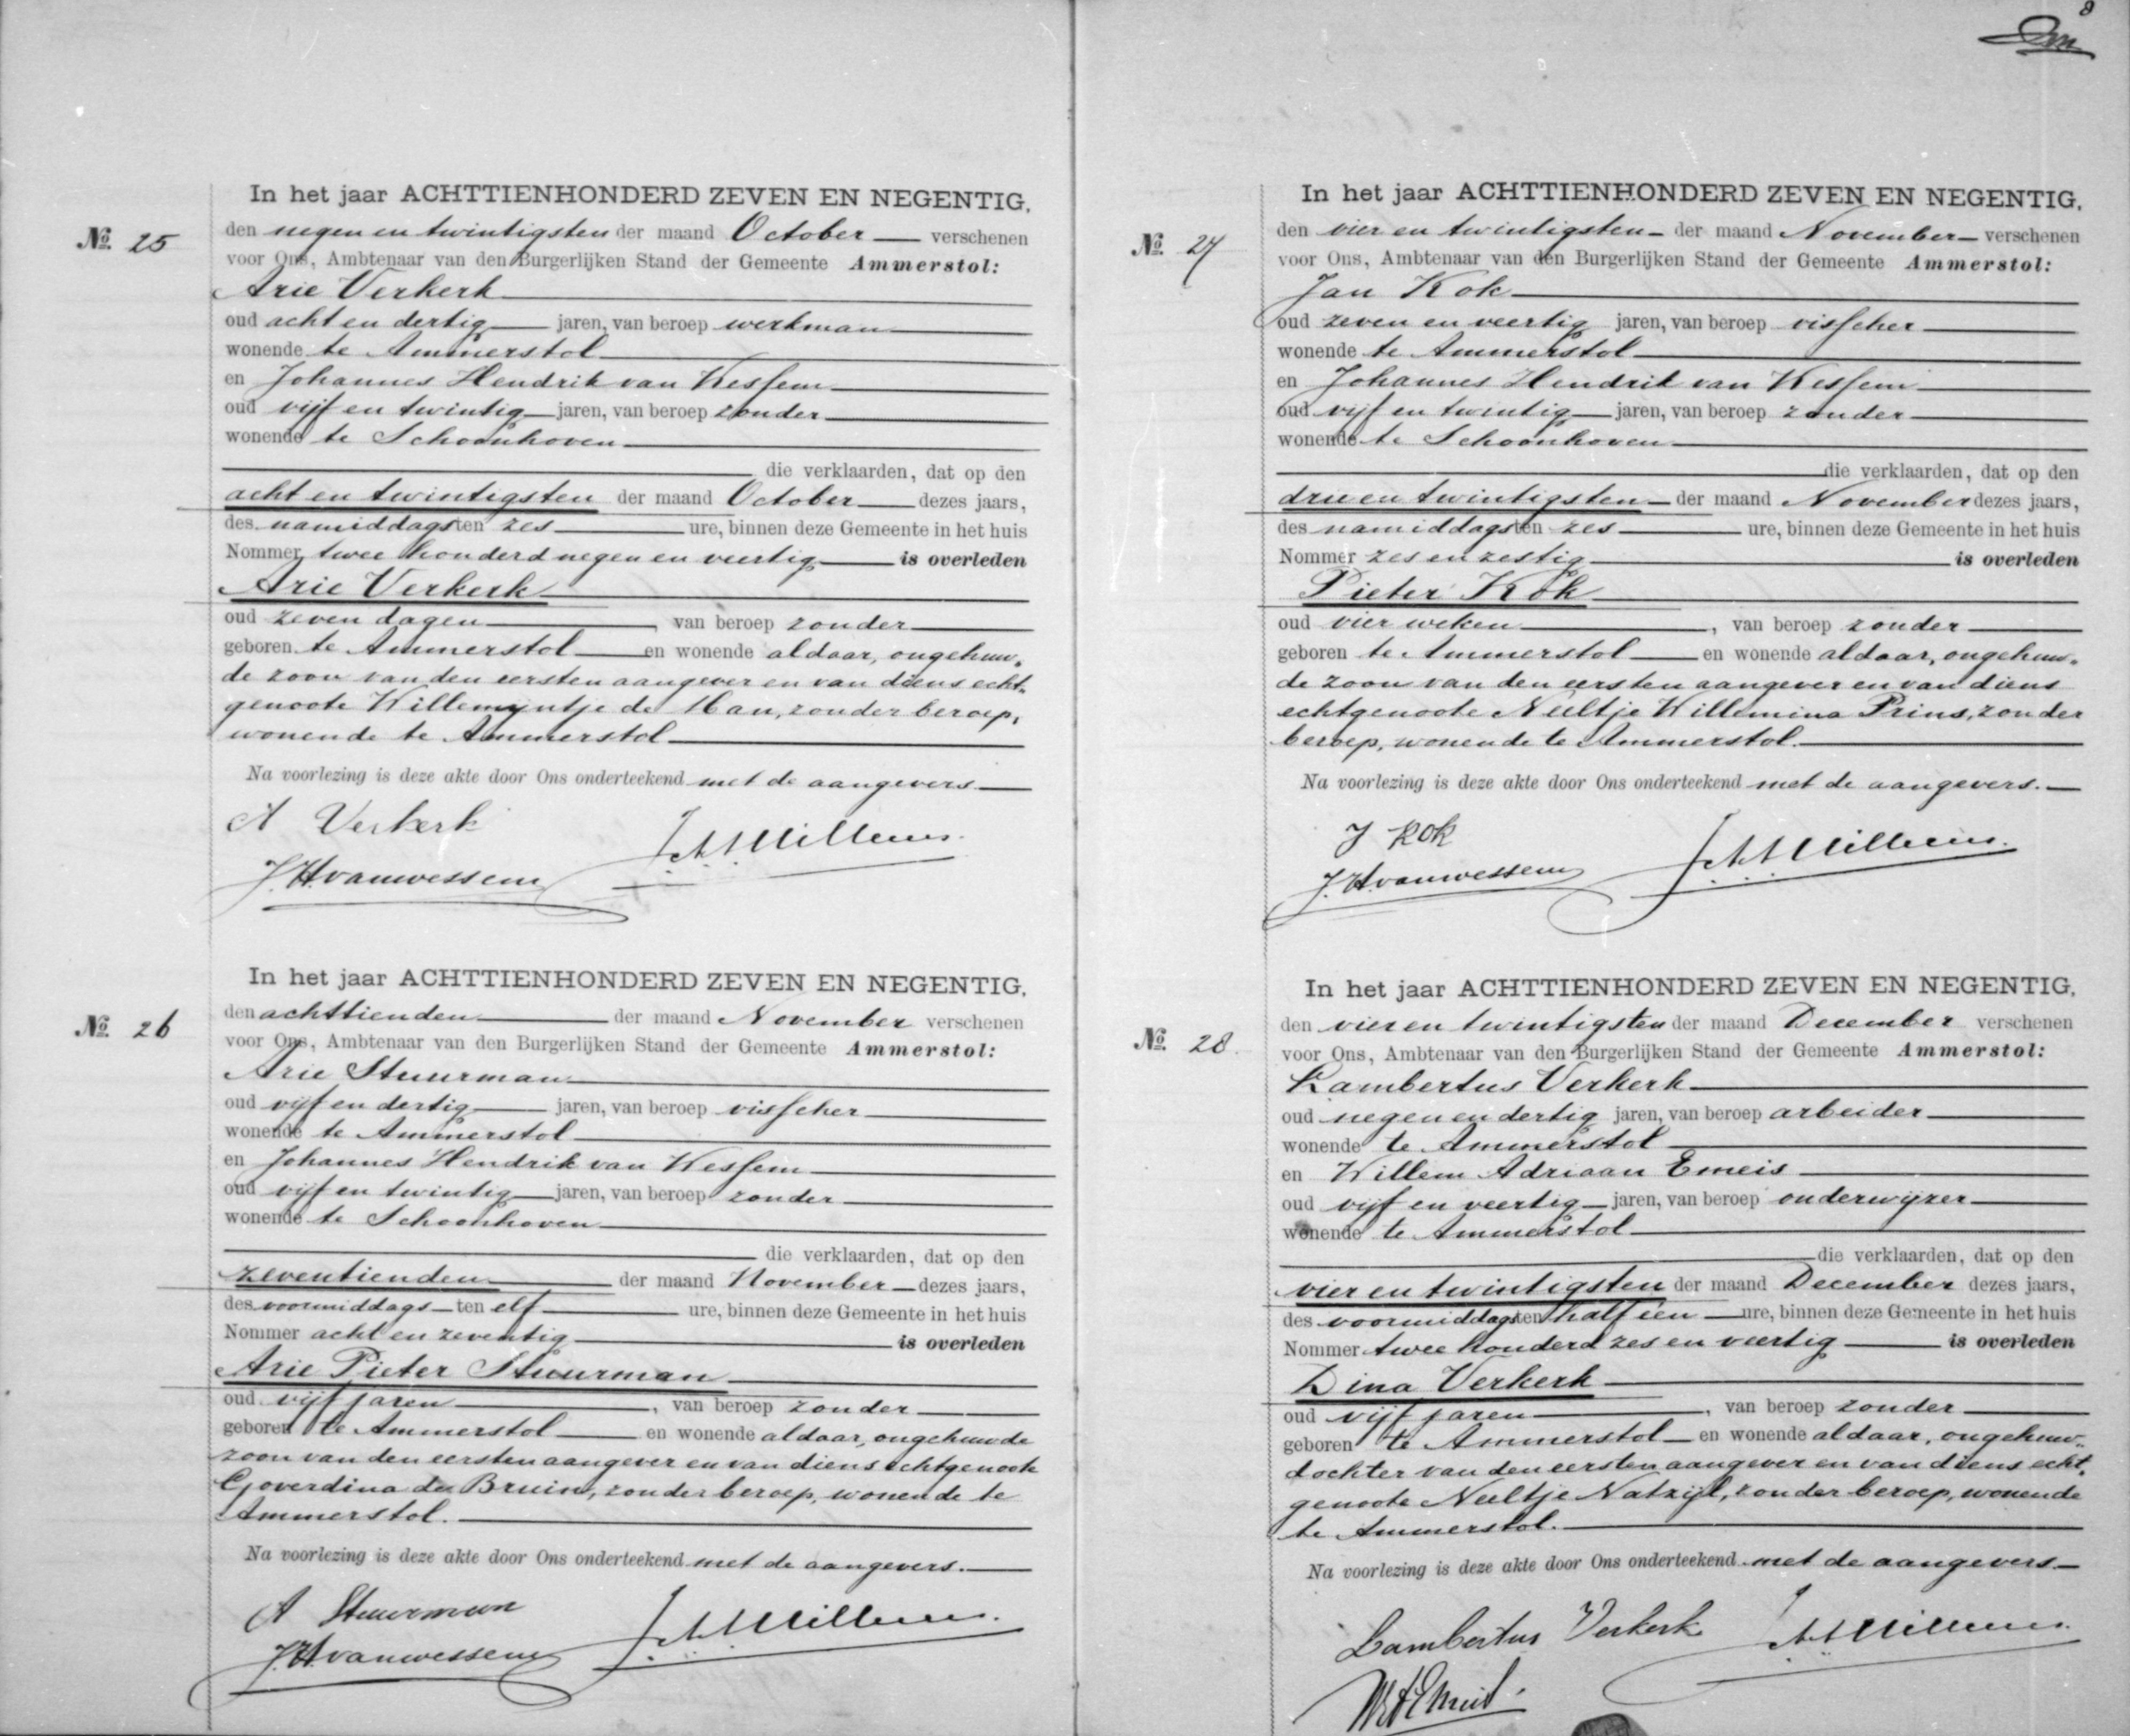 In het jaar ACHTTIENHONDERD ZEVEN EN NEGENTIG,
No. 25
den negen en twintigsten der maand October verschenen
voor Ons, Ambtenaar van den Burgerlijken Stand der Gemeente Ammerstol:
Arie Verkerk
oud acht en dertig jaren, van beroep werkman
wonende te Ammerstol
en Johannes Hendrik van Wessem
oud vijf en twintig jaren, van beroep zonder
wonende te Schoonhoven
die verklaarden, dat op den
acht en twintigsten der maand October dezes jaars,
des namiddags ten zes ure, binnen deze Gemeente in het huis
Nommer twee honderd negen en veertig is overleden
Arie Verkerk
oud zeven dagen, van beroep zonder
geboren te Ammerstol en wonende aldaar, ongehuw„
de zoon van den eersten aangever en van diens echt„
genoote Willemijntje de Man, zonder beroep,
wonende te Ammerstol
Na voorlezing is deze akte door Ons onderteekend met de aangevers.
A Verkerk
JHvanwessem
In het jaar ACHTTIENHONDERD ZEVEN EN NEGENTIG,
No. 26
den achttienden der maand November verschenen
voor Ons, Ambtenaar van den Burgerlijken Stand der Gemeente Ammerstol:
Arie Stuurman
oud vijf en dertig jaren, van beroep visscher
wonende te Ammerstol
en Johannes Hendrik van Wessem
oud vijf en twintig jaren, van beroep zonder
wonende te Schoonhoven
die verklaarden, dat op den
zeventienden der maand November dezes jaars,
des voormiddags ten elf ure, binnen deze Gemeente in het huis
Nommer acht en zeventig is overleden
Arie Pieter Stuurman
oud vijf jaren, van beroep zonder
geboren te Ammerstol en wonende aldaar, ongehuwde
zoon van den eersten aangever en van diens echtgenoote
Goverdina de Bruin, zonder beroep, wonende te
Ammerstol.
Na voorlezing is deze akte door Ons onderteekend met de aangevers.
A Stuurman
JHvanwessem
8
In het jaar ACHTTIENHONDERD ZEVEN EN NEGENTIG,
No. 27
den vier en twintigsten der maand November verschenen
voor Ons, Ambtenaar van den Burgerlijken Stand der Gemeente Ammerstol:
Jan Kok
oud zeven en veertig jaren, van beroep visscher
wonende te Ammerstol
en Johannes Hendrik van Wessem
oud vijf en twintig jaren, van beroep zonder
wonende te Schoonhoven
die verklaarden, dat op den
drie en twintigsten der maand November dezes jaars,
des namiddags ten zes ure, binnen deze Gemeente in het huis
Nommer zes en zestig is overleden
Pieter Kok
oud vier weken, van beroep zonder
geboren te Ammerstol en wonende aldaar, ongehuw„
de zoon van den eersten aangever en van diens
echtgenoote Neeltje Willemina Prins, zonder
beroep, wonende te Ammerstol.
Na voorlezing is deze akte door Ons onderteekend met de aangevers.
J Kok
J.Hvanwessem
In het jaar ACHTTIENHONDERD ZEVEN EN NEGENTIG,
No. 28.
den vier en twintigsten der maand December verschenen
voor Ons, Ambtenaar van den Burgerlijken Stand der Gemeente Ammerstol:
Lambertus Verkerk
oud negen en dertig jaren, van beroep arbeider
wonende te Ammerstol
en Willem Adriaan Emeis
oud vijf en veertig jaren, van beroep onderwijzer
wonende te Ammerstol
die verklaarden, dat op den
vier en twintigsten der maand December dezes jaars,
des voormiddags ten half een ure, binnen deze Gemeente in het huis
Nommer twee honderd zes en veertig is overleden
Dina Verkerk
oud vijf jaren, van beroep zonder
geboren te Ammerstol en wonende aldaar, ongehuw„
dochter van den eersten aangever en van diens echt„
genoote Neeltje Natzijl, zonder beroep, wonende
te Ammerstol.
Na voorlezing is deze akte door Ons onderteekend met de aangevers
Lambertus Verkerk